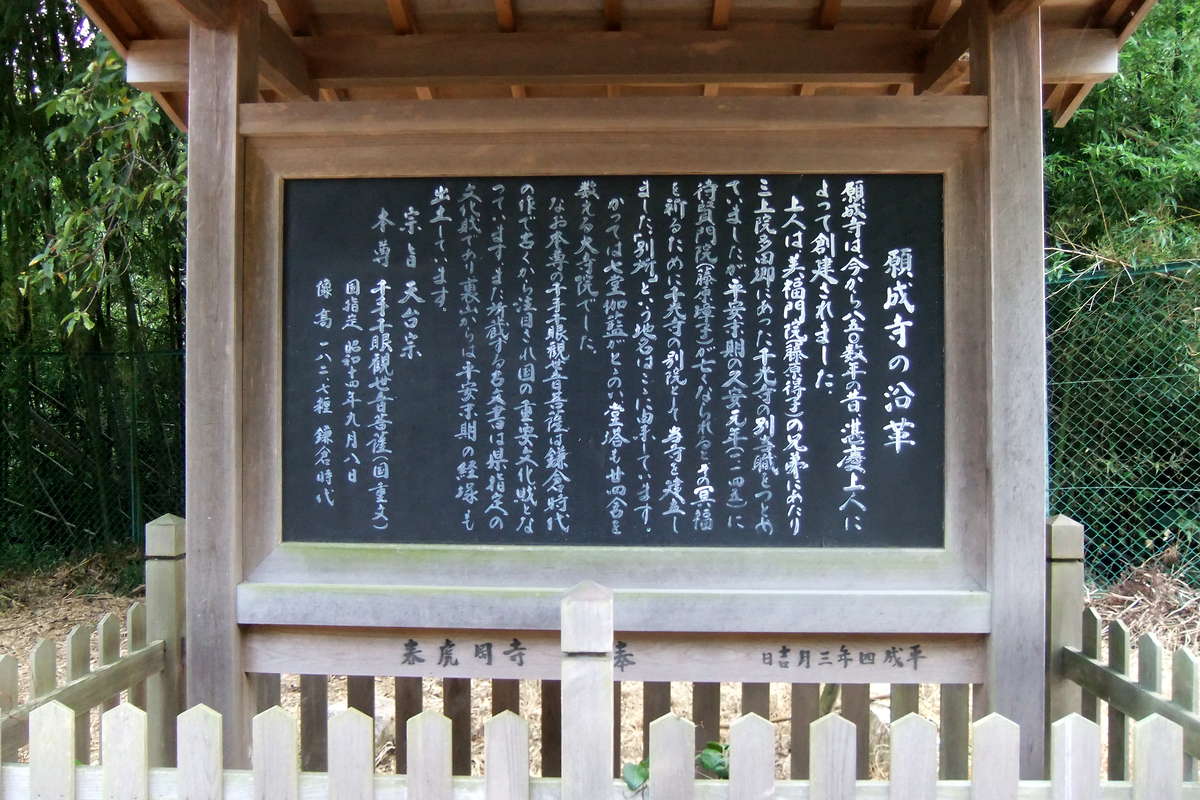 願成寺の沿革
願成寺は今から八五〇数年の昔、湛慶上人に
よって創建されました。
上人は美福門院(藤原得子)の兄弟にあたり
三上院多田郷にあった千光寺の別当職をつとめ
ていましたが平安末期の久安元年(一一四五)に
待賢門院(藤原璋子)が亡くなられるとその冥福
を祈るために千光寺の別院として当寺を建立し
ました「別所」という地名はここに由来しています。
かつては七堂伽藍がととのい堂塔も廿四宇を
数える大寺院でした。
なお本尊の千手千眼観世音菩薩は鎌倉時代
の作で古くから注目され国の重要文化財とな
っています。また所蔵する古文書は県指定の
文化財であり裏山からは平安末期の経塚も
出土しています。
宗旨 天台宗
本尊 千手千眼観世音菩薩(国重文)
国指定 昭和十四年九月八日
像高 一八二・七糎 鎌倉時代
平成四年三月吉日
奉 寺岡虎春